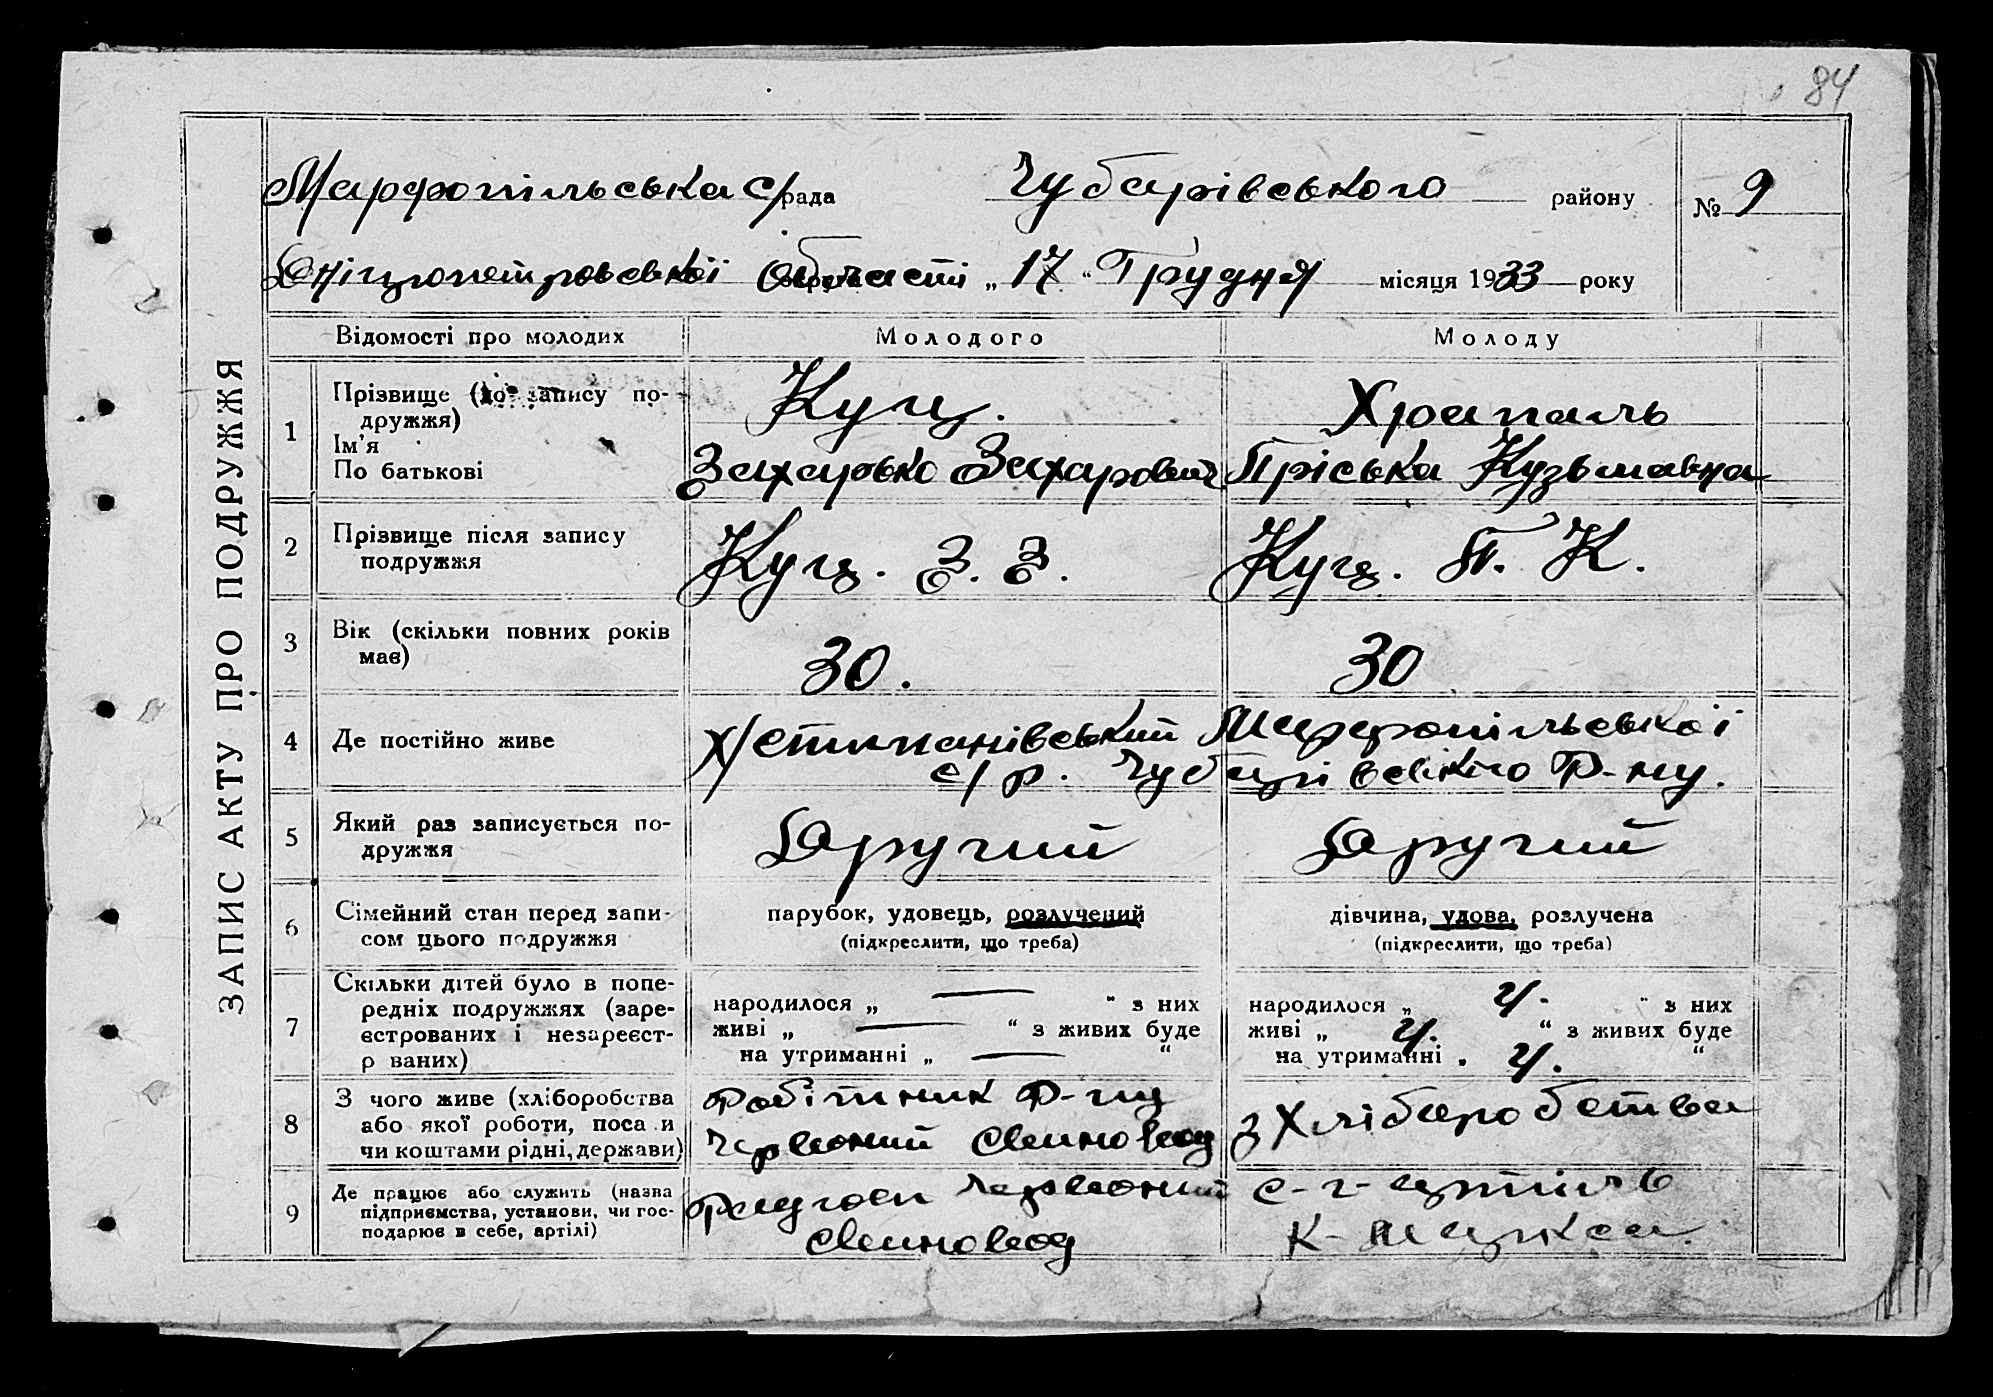 84
ЗАПИС АКТУ ПРО ПОДРУЖЖЯ
Марфопільська с/рада Чубарівського району № 9
Дніпропетровської Області „17“ Грудня місяця 1933 року
Відомості про молодих Молодого Молоду
1 Прізвище (до запису по-
дружжя)
Ім'я
По батькові
Куц. Захарько Захарович
Храпаль Пріська Кузьмавна
2 Прізвище після запису
подружжя
Куц. З. З.
Куц. П. К.
3 Вік (скільки повних років
має)
30.
30
4 Де постійно живе
Х/Степанівський Марфопільської
с/р. Чубарівського Р-ну.
5 Який раз записується по-
дружжя
Другий
Другий
6 Сімейний стан перед запи-
сом цього подружжя
парубок, удовець, розлучений
(підкреслити, що треба)
дівчина, удова, розлучена
(підкреслити, що треба)
7 Скільки дітей було в попе-
редніх подружжях (заре-
єстрованих і незареєст-
р ваних)
народилося „ — “ з них
живі „ — “ з живих буде
на утриманні „ — “
народилося „ 4. “ з них
живі „ 4. “ з живих буде
на утриманні „ 4. “
8 З чого живе (хліборобства
або якої роботи, поса и
чи коштами рідні, держави)
Робітник Р-пу
Червоний Свиновод
з Хліборобства
9 Де працює або служить (назва
підприємства, установи, чи гос-
подарює в себе, артілі)
Радгосп Червоний
Свиновод
с-г-артіль
К-Маркса.